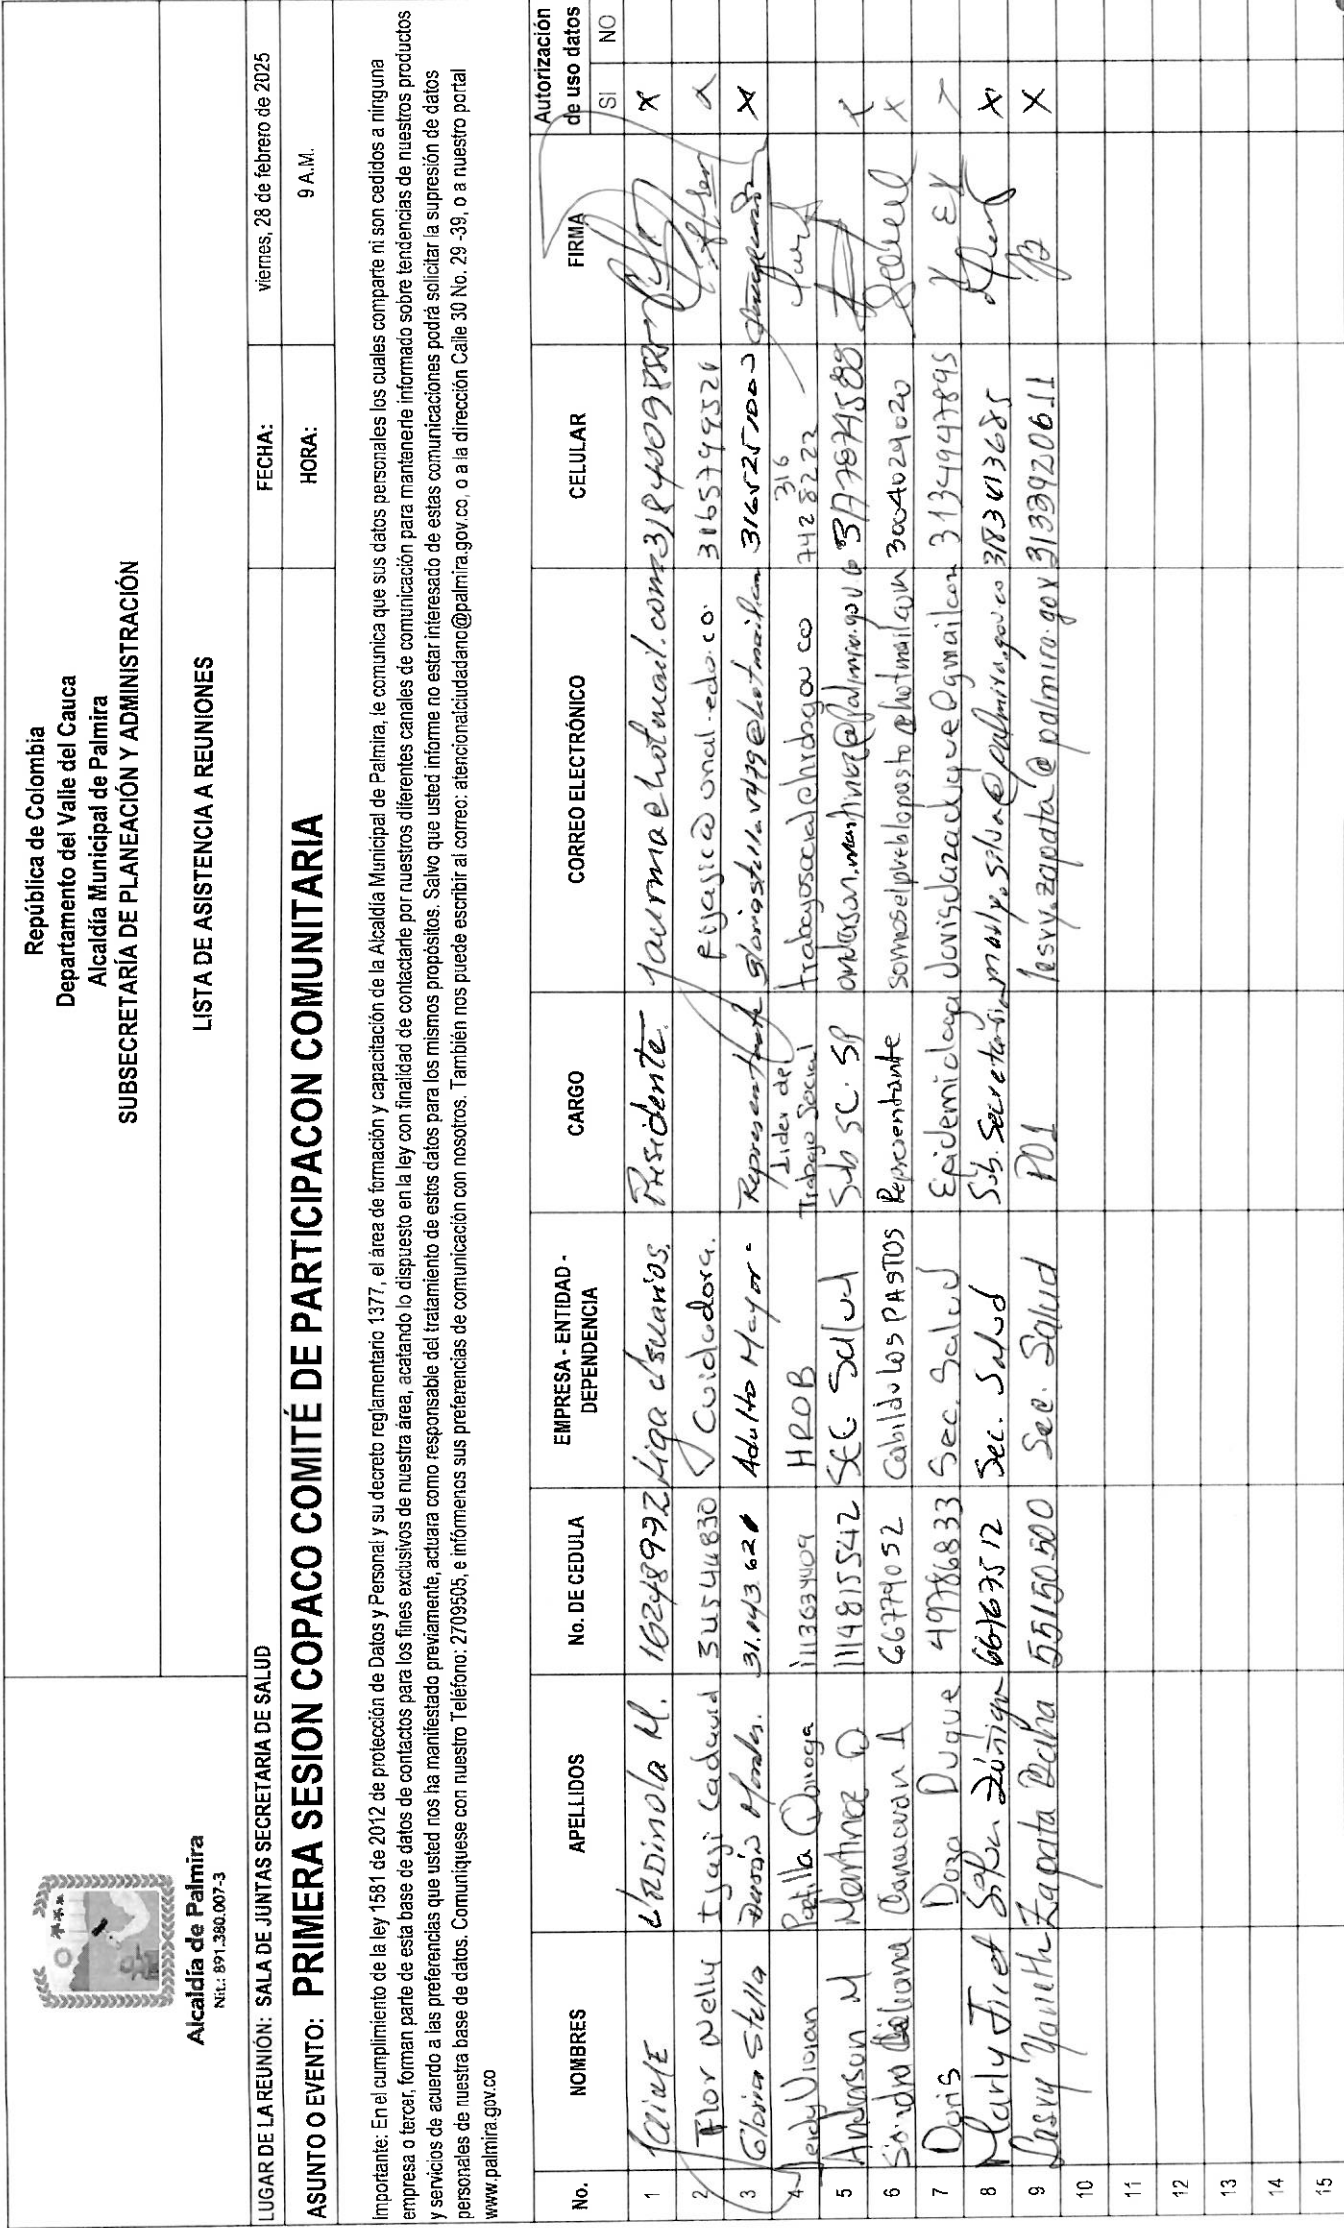 República de Colombia
Departamento del Valle del Cauca
Alcaldía Municipal de Palmira
SUBSECRETARÍA DE PLANEACIÓN Y ADMINISTRACIÓN
Alcaldía de Palmira
Nit.: 891.380.007-3
LISTA DE ASISTENCIA A REUNIONES
LUGAR DE LA REUNIÓN: SALA DE JUNTAS SECRETARIA DE SALUD FECHA: viernes, 28 de febrero de 2025
ASUNTO O EVENTO: PRIMERA SESION COPACO COMITÉ DE PARTICIPACON COMUNITARIA HORA: 9 A.M.
Importante: En el cumplimiento de la ley 1581 de 2012 de protección de Datos y Personal y su decreto reglamentario 1377, el área de formación y capacitación de la Alcaldía Municipal de Palmira, le comunica que sus datos personales los cuales comparte ni son cedidos a ninguna
empresa o tercer, forman parte de esta base de datos de contactos para los fines exclusivos de nuestra área, acatando lo dispuesto en la ley con finalidad de contactarle por nuestros diferentes canales de comunicación para mantenerle informado sobre tendencias de nuestros productos
y servicios de acuerdo a las preferencias que usted nos ha manifestado previamente, actuara como responsable del tratamiento de estos datos para los mismos propósitos. Salvo que usted informe no estar interesado de estas comunicaciones podrá solicitar la supresión de datos
personales de nuestra base de datos. Comuniquese con nuestro Teléfono: 2709505, e infórmenos sus preferencias de comunicación con nosotros. También nos puede escribir al correo: atencionalciudadano@palmira.gov.co, o a la dirección Calle 30 No. 29 -39, o a nuestro portal
www.palmira.gov.co
No. NOMBRES APELLIDOS No. DE CEDULA EMPRESA - ENTIDAD - DEPENDENCIA CARGO CORREO ELECTRÓNICO CELULAR FIRMA Autorización de uso datos SI NO
1 Jaime Ladinola M. 16248992 Liga Usuarios. Presidente X
2 Flor Nelly Cuidadora. 3165799526
3 Gloria Stella Durán Morales. 31.143.620 Adulto Mayor Representante X
4 Leidy Vivian Portilla Quiroga 1113634409 HROB Lider del Trabajo Social 316 742 8222
5 Anderson M Martinez O 1114815542 SEC Salud Sub SC. SP anderson.martinez@palmira.gov.co 3177874588 X
6 Sandra 66779052 Cabildo Los PASTOS Representante 3004029020 X
7 Doris Daza Duque 49786833 Sec. Salud Epidemiologa dorisdazaduque@gmail.com 3134947895
8 Marly Silva Zúñiga 66167512 Sec. Salud Sub. Secretaria 3183413685 X
9 Lesvy Yaneth Zapata 55150500 Sec. Salud PO1 lesvy.zapata@palmira.gov 3133920611 X
10
11
12
13
14
15